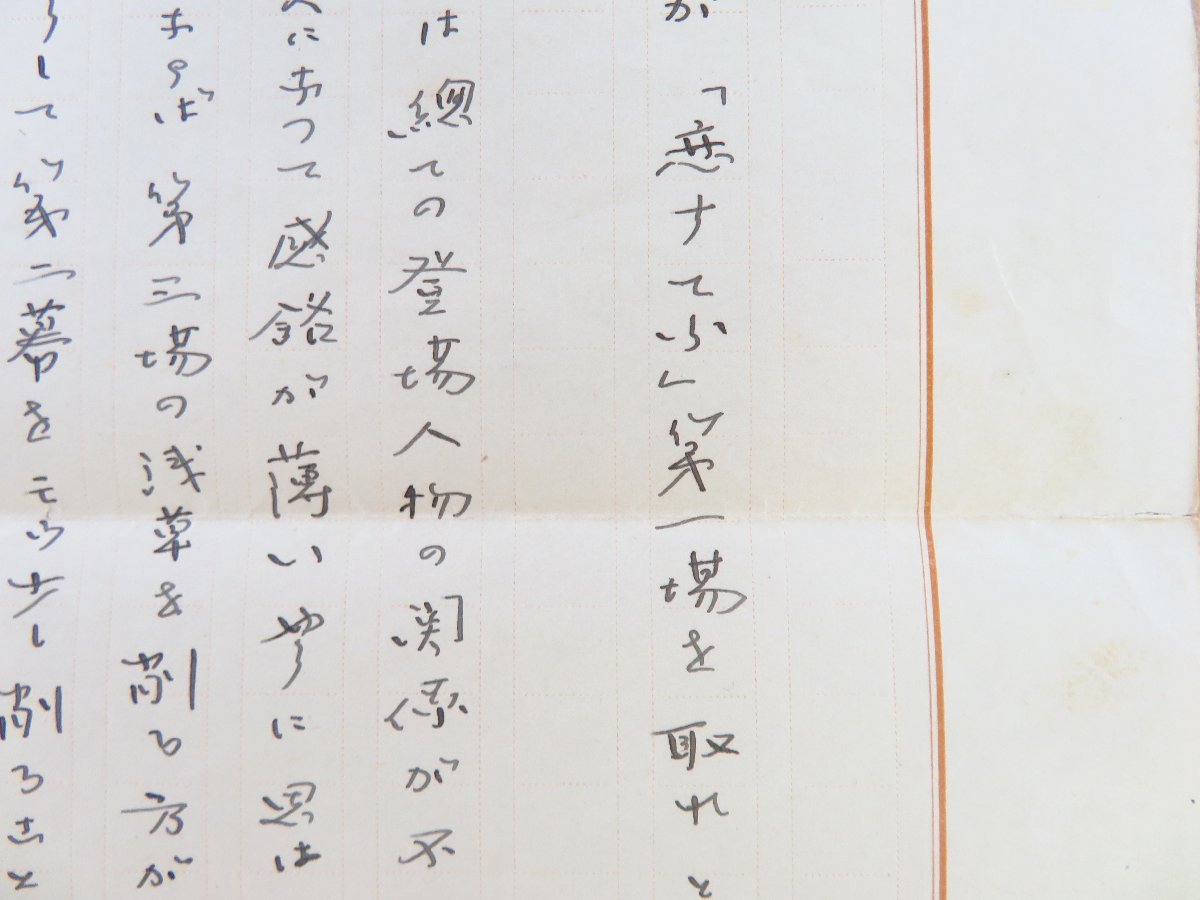 が「恋すてふ」第一場を取れと
は總ての登場人物の関係が不
にあつて感銘が薄い様に思は
あらば第三場の浅草を削る方が
うして第二幕をモウ少し削ること